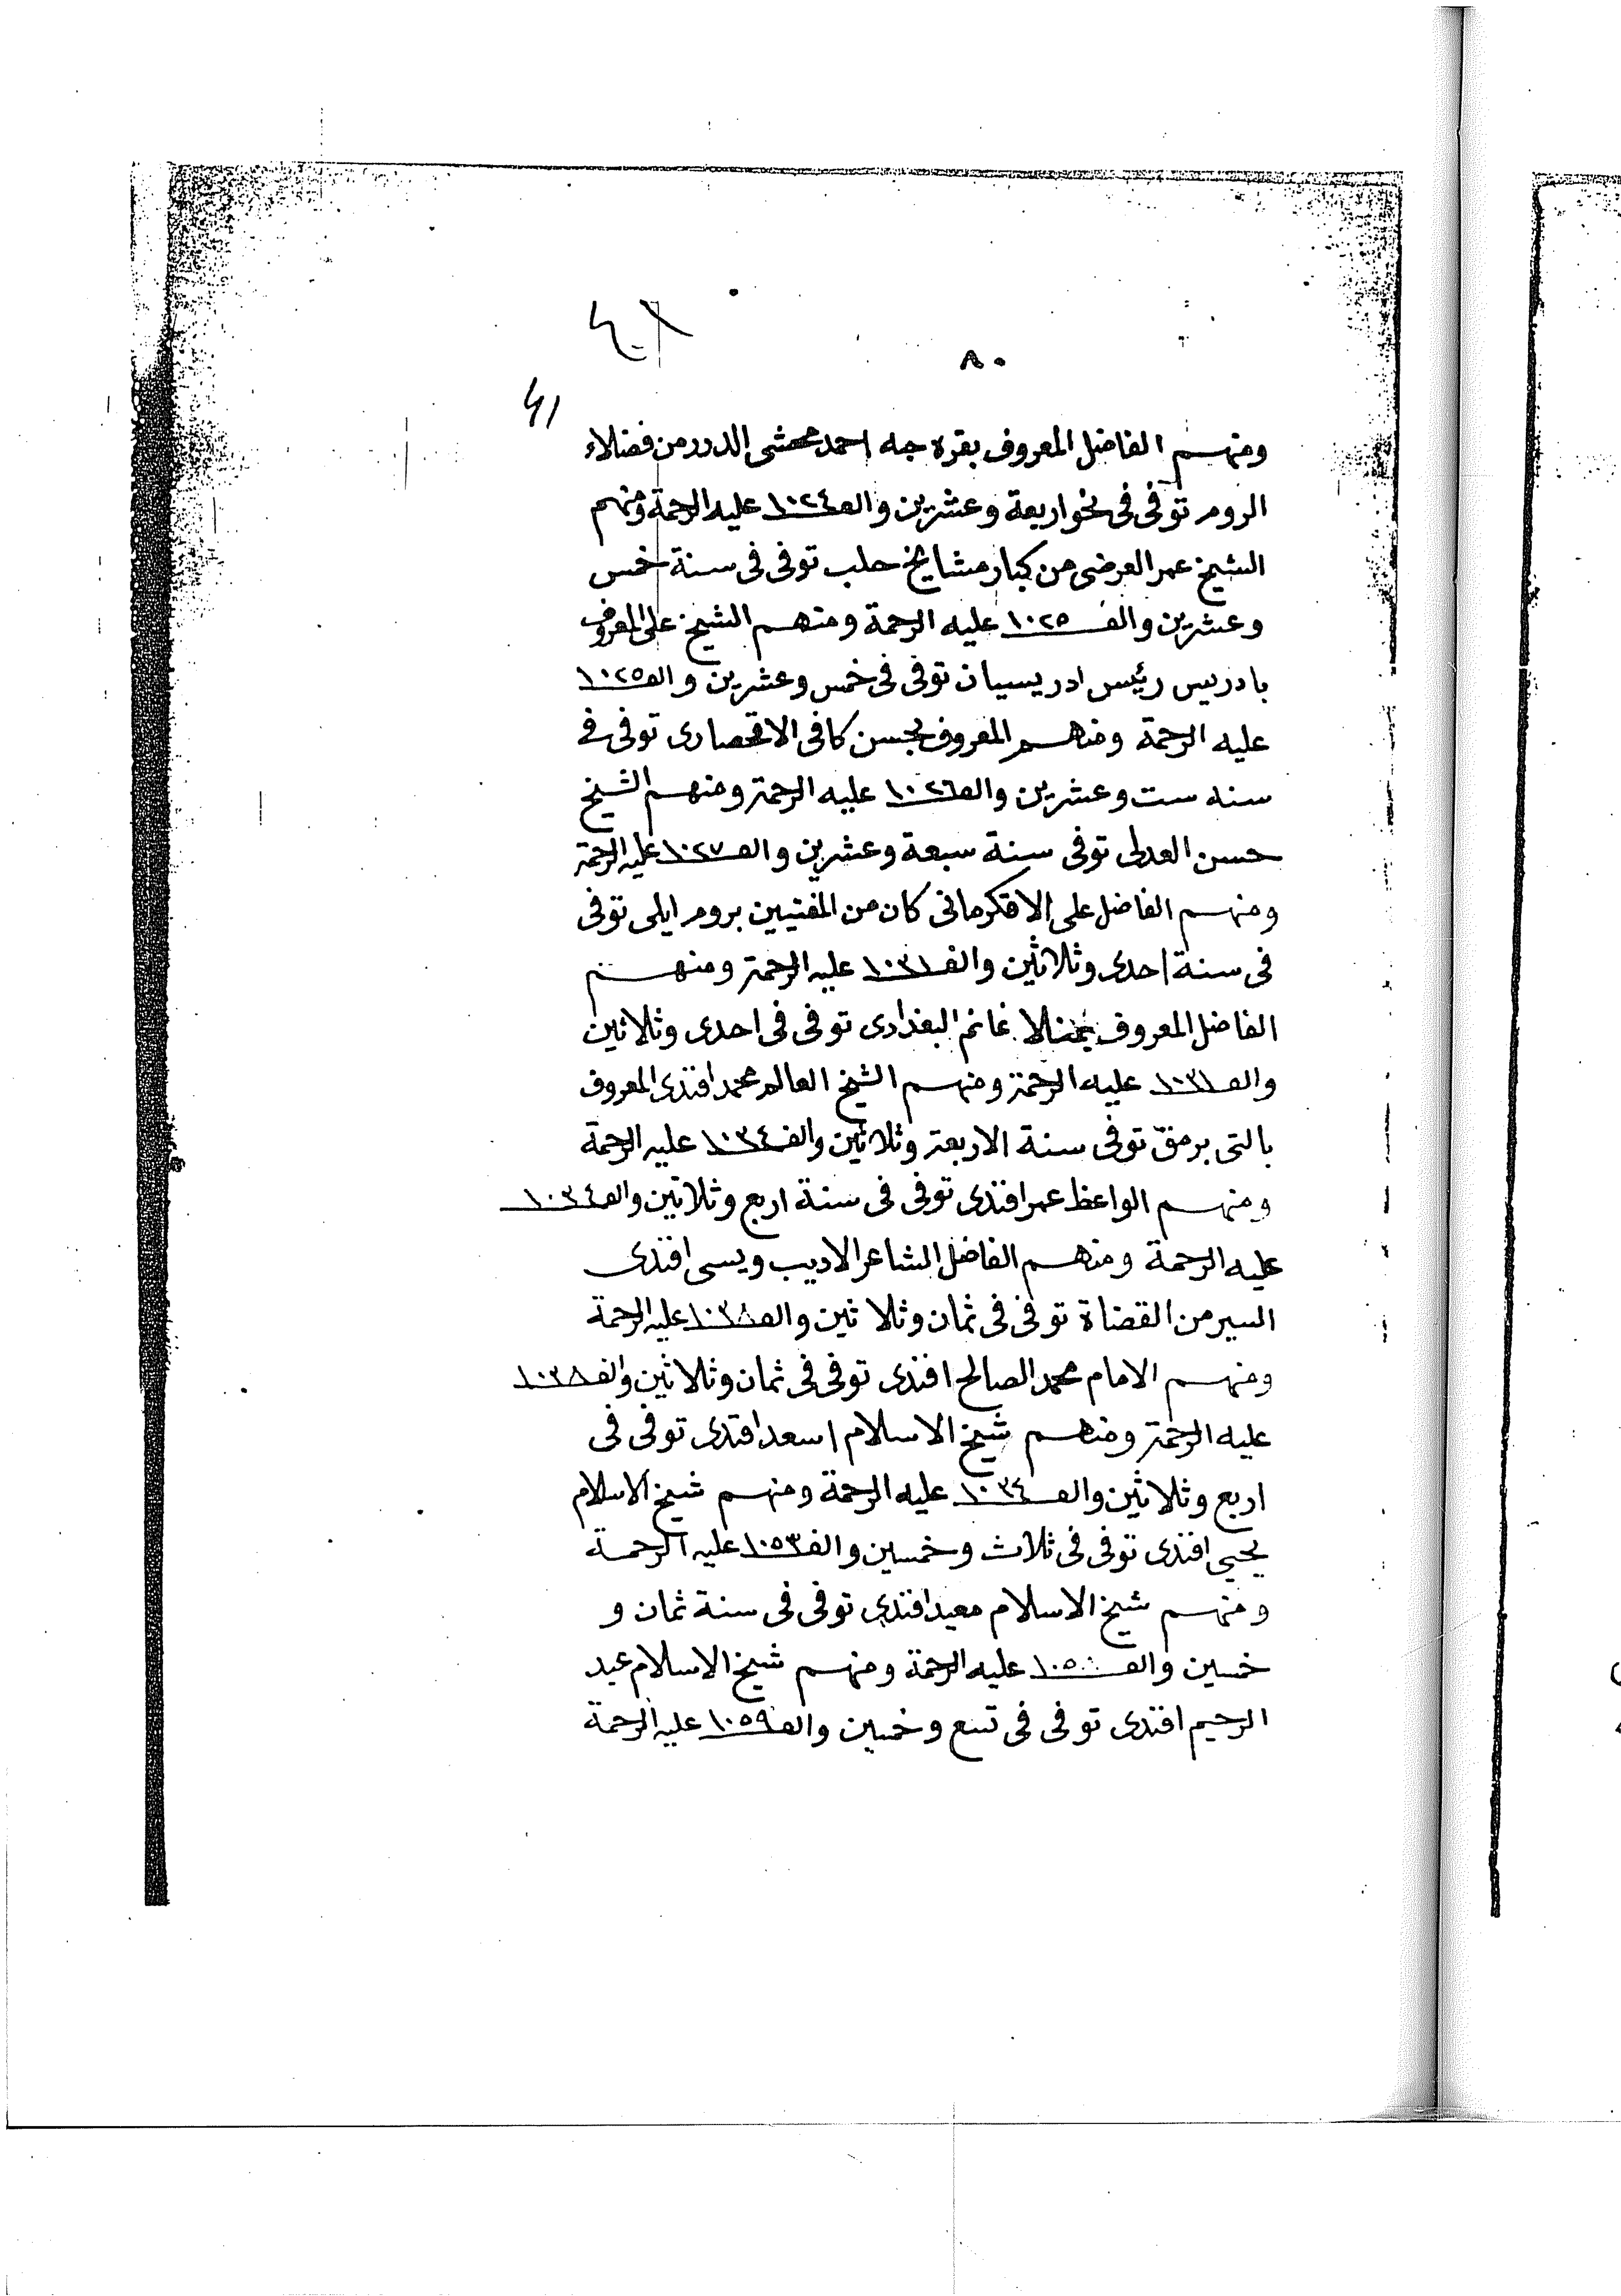 ٨٠
٤١
ومنهم الفاضل المعروف بقره جه احمد محشى الدرر من فضلاء
الروم توفى فى نحو اربعة وعشرين والف ١٠٢٤ عليه الرحمة ومنهم
الشيخ عمر العرضى من كبار مشايخ حلب توفى فى سنة خمس
وعشرين والف ١٠٢٥ عليه الرحمة ومنهم الشيخ على المعروف
بادريس رئيس ادريسيان توفى فى خمس وعشرين والف ١٠٢٥
عليه الرحمة ومنهم المعروف بحسن كافى الاقحصارى توفى فى
سنه ست وعشرين والف ١٠٢٦ عليه الرحمة ومنهم الشيخ
حسن العدلى توفى سنة سبعة وعشرين والف ١٠٢٧ عليه الرحمة
ومنهم الفاضل على الاقكرمانى كان من المفتيين بروم ايلى توفى
فى سنة احدى وثلاثين والف ١٠٣١ عليه الرحمة ومنهم
الفاضل المعروف غانم البغدادى توفى فى احدى وثلاثين
والف ١٠٣١ عليه الرحمة ومنهم الشيخ العالم محمد افندى المعروف
بالتى برمق توفى سنة الاربعة وثلاثين والف ١٠٣٤ عليه الرحمة
ومنهم الواعظ عمر افندى توفى فى سنة اربع وثلاثين والف ١٠٣٤
عليه الرحمة ومنهم الفاضل الشاعر الاديب ويسى افندى
السير من القضاة توفى فى ثمان وثلاثين والف ١٠٣٨ عليه الرحمة
ومنهم الامام محمد الصالح افندى توفى فى ثمان وثلاثين والف ١٠٣٨
عليه الرحمة ومنهم شيخ الاسلام اسعد افندى توفى فى
اربع وثلاثين والف ١٠٣٤ عليه الرحمة ومنهم شيخ الاسلام
يحيى افندى توفى فى ثلاث وخمسين والف ١٠٥٣ عليه الرحمة
ومنهم شيخ الاسلام معيد افندى توفى فى سنة ثمان و
خمسين والف ١٠٥٨ عليه الرحمة ومنهم شيخ الاسلام عبد
الرحيم افندى توفى فى تسع وخمسين والف ١٠٥٩ عليه الرحمة